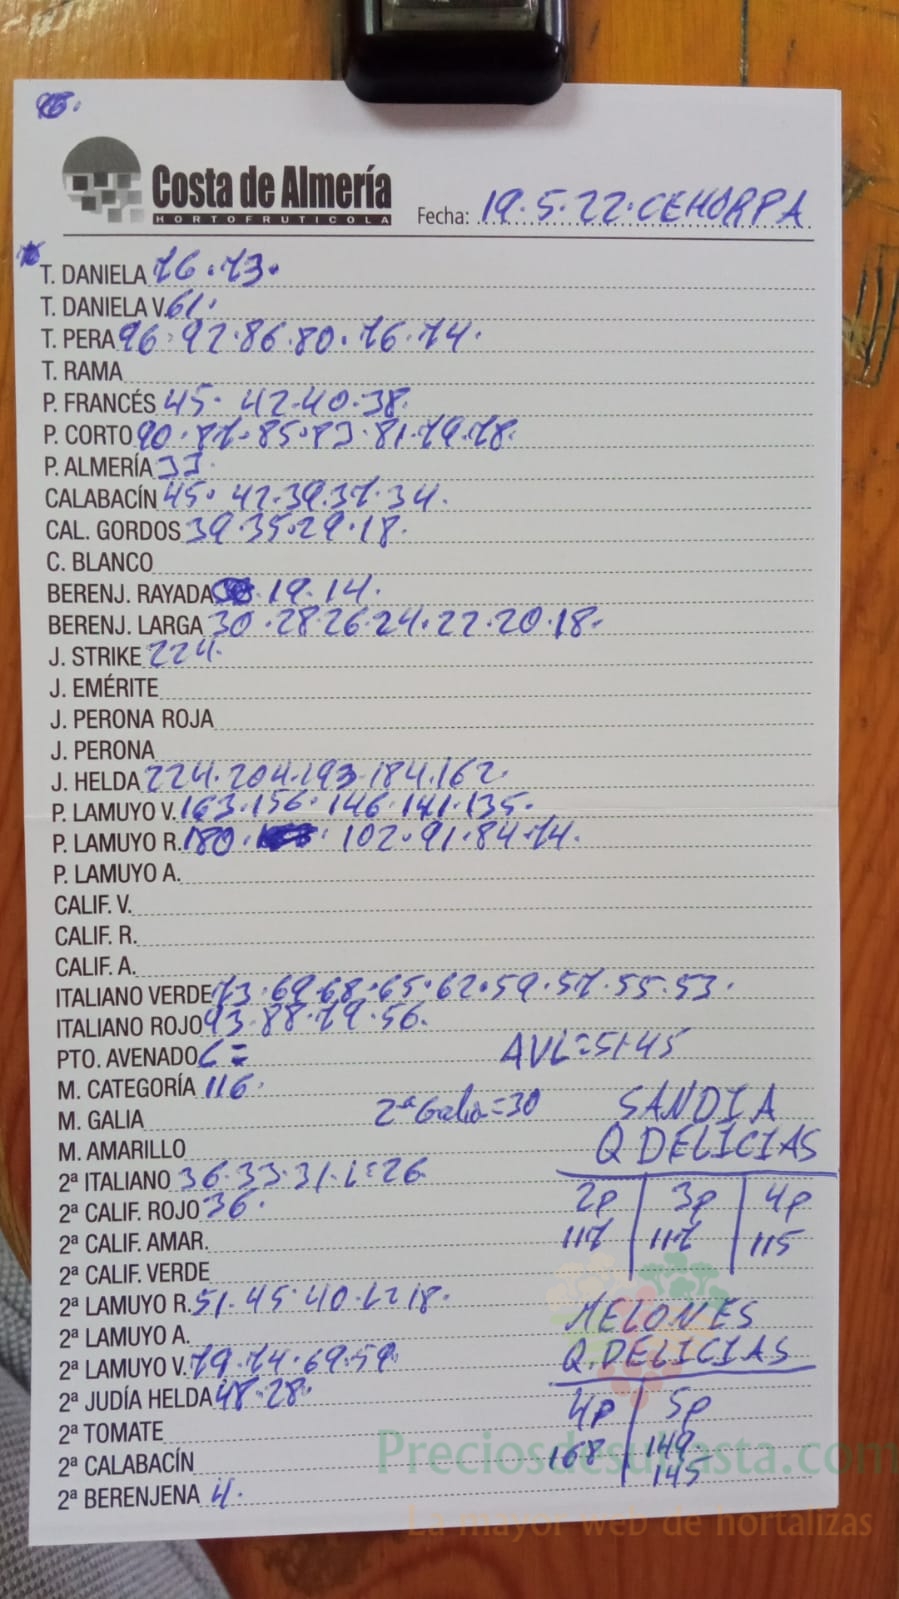 Costa de Almería
HORTOFRUTICOLA
Fecha: 19.5.22.CEHORPA
T. DANIELA 76.73.
T. DANIELA V. 61.
T. PERA 96.92.86.80.76.74.
T. RAMA
P. FRANCÉS 45. 42.40.38.
P. CORTO 90.87.85.83.81.79.78.
P. ALMERÍA 33.
CALABACÍN 45. 42.39.37.34.
CAL. GORDOS 39.35.29.18.
C. BLANCO
BERENJ. RAYADA 19.14.
BERENJ. LARGA 30.28.26.24.22.20.18.
J. STRIKE 224.
J. EMÉRITE
J. PERONA ROJA
J. PERONA
J. HELDA 224.204.193.184.162.
P. LAMUYO V. 163.156.146.141.135.
P. LAMUYO R. 180. 102.91.84.74.
P. LAMUYO A.
CALIF. V.
CALIF. R.
CALIF. A.
ITALIANO VERDE 73.69.68.65.62.59.57.55.53.
ITALIANO ROJO 93.88.79.56.
PTO. AVENADO
AVL=51.45
M. CATEGORÍA 116.
M. GALIA
2ª Galia=30
M. AMARILLO
2ª ITALIANO 36.33.31.L=26
2ª CALIF. ROJO 36.
2ª CALIF. AMAR.
2ª CALIF. VERDE
2ª LAMUYO R. 51.45.40.L=18.
2ª LAMUYO A.
2ª LAMUYO V. 79.74.69.59.
2ª JUDÍA HELDA 48.28.
2ª TOMATE
2ª CALABACÍN
2ª BERENJENA 4.
SANDIA
Q DELICIAS
2p 3p 4p
117 117 115
MELONES
Q.DELICIAS
4p 5p
168 149
145
Preciosdesubasta.com
La mayor web de hortalizas